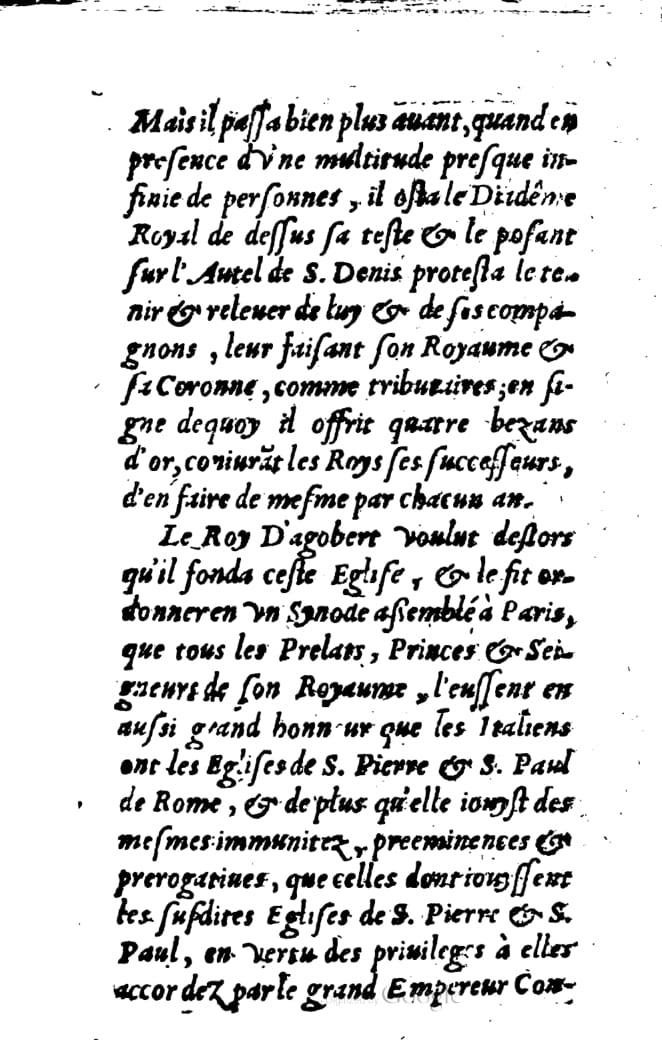 Mais il paſſa bien plus auant, quand en
preſence d'vne multitude preſque in-
finie de perſonnes, il oſta le Diadême
Royal de deſſus ſa teſte & le poſant
ſur l'Autel de S. Denis proteſta le te-
nir & releuer de luy & de ſes compa-
gnons, leur faiſant ſon Royaume &
ſa Coronne, comme tributaires; en ſi-
gne dequoy il offrit quatre bezans
d'or, coniurãt les Roys ſes ſucceſſeurs,
d'en faire de meſme par chacun an.
Le Roy D'agobert voulut deſlors
qu'il fonda ceſte Egliſe, & le fit or-
donner en vn Synode aſſemblé à Paris,
que tous les Prelats, Princes & Sei-
gneurs de ſon Royaume, l'euſſent en
auſſi grand honneur que les Italiens
ont les Egliſes de S. Pierre & S. Paul
de Rome, & de plus qu'elle iouyſt des
meſmes immunitez, preeminences &
prerogatiues, que celles dont iouyſſent
les ſuſdites Egliſes de S. Pierre & S.
Paul, en vertu des priuileges à elles
accordez par le grand Empereur Con-
Google